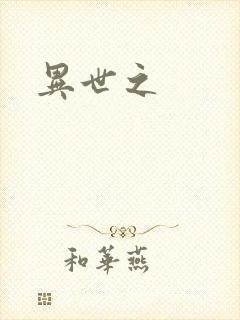 異世之
和華燕